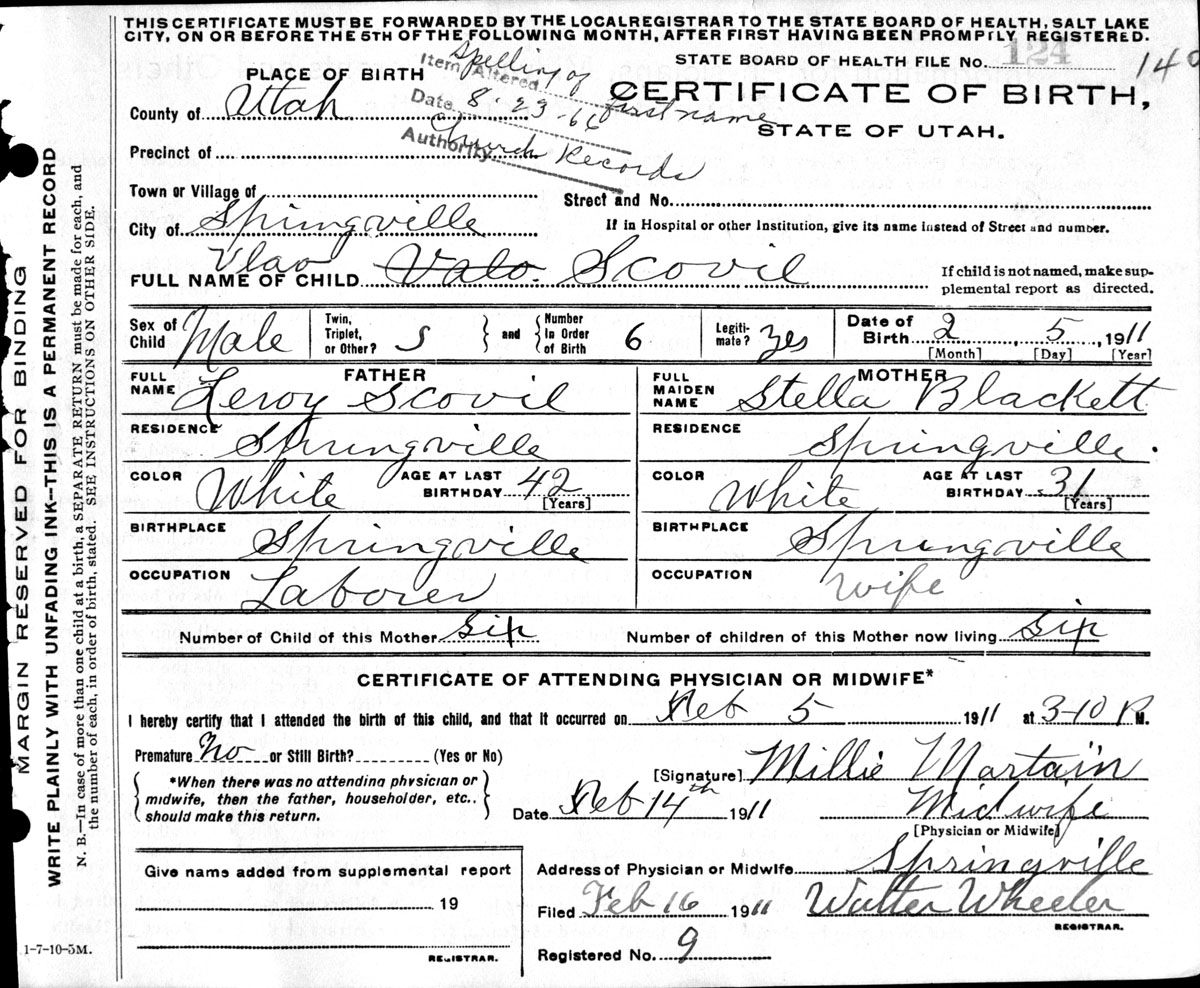 THIS CERTIFICATE MUST BE FORWARDED BY THE LOCAL REGISTRAR TO THE STATE BOARD OF HEALTH, SALT LAKE
CITY, ON OR BEFORE THE 5TH OF THE FOLLOWING MONTH, AFTER FIRST HAVING BEEN PROMPTLY REGISTERED.
STATE BOARD OF HEALTH FILE No. 124 140
PLACE OF BIRTH
Item Altered Spelling of first name
Date 8-23-66
Authority Church Records
CERTIFICATE OF BIRTH,
STATE OF UTAH.
County of Utah
Precinct of
Town or Village of
Street and No.
City of Springville
If in Hospital or other Institution, give its name instead of Street and number.
Vlao
FULL NAME OF CHILD Valo. Scovil
If child is not named, make sup-
plemental report as directed.
Sex of Child Male Twin, Triplet, or Other? S and Number In Order of Birth 6 Legiti- mate? Yes Date of Birth 2, 5, 1911
[Month] [Day] [Year]
FATHER
FULL NAME Leroy Scovil
RESIDENCE Springville
COLOR White AGE AT LAST BIRTHDAY 42 [Years]
BIRTHPLACE Springville
OCCUPATION Laborer
MOTHER
FULL MAIDEN NAME Stella Blackett
RESIDENCE Springville.
COLOR White AGE AT LAST BIRTHDAY 31 [Years]
BIRTHPLACE Springville
OCCUPATION Wife
Number of Child of this Mother Six Number of children of this Mother now living Six
CERTIFICATE OF ATTENDING PHYSICIAN OR MIDWIFE*
I hereby certify that I attended the birth of this child, and that it occurred on Feb 5 1911 at 3-10 P M.
Premature No or Still Birth? (Yes or No)
*When there was no attending physician or
midwife, then the father, householder, etc..
should make this return.
[Signature] Millie Martain
Date Feb 14th 1911 Midwife
[Physician or Midwife]
Address of Physician or Midwife Springville
Give name added from supplemental report
19
REGISTRAR.
Filed Feb 16 1911 Walter Wheeler
REGISTRAR.
Registered No. 9
1-7-10-5M.
MARGIN RESERVED FOR BINDING
WRITE PLAINLY WITH UNFADING INK—THIS IS A PERMANENT RECORD
N. B.—In case of more than one child at a birth, a SEPARATE RETURN must be made for each, and
the number of each, in order of birth, stated. SEE INSTRUCTIONS ON OTHER SIDE.